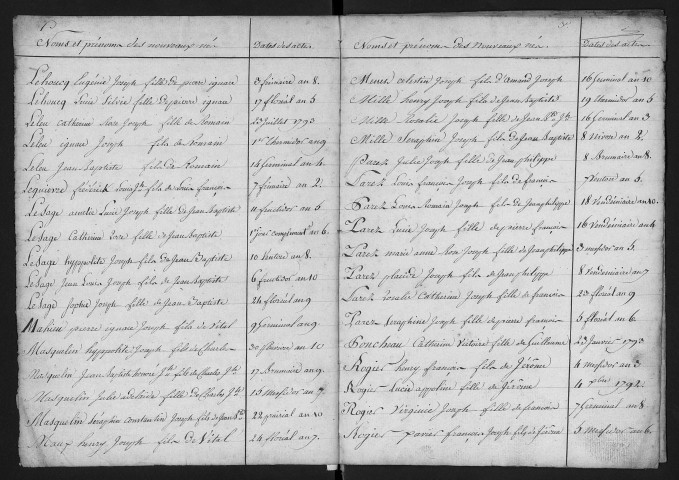 Noms et prénoms des nouveaux né
Dates des actes
Lehoucq Eugénie Joseph fille de pierre ignace 3 frimaire an 8.
Lehoucq Lucie Silvie fille de pierre ignace 17 floréal an 5
Leleu Catherine Rose Joseph fille de Romain 23 juillet 1793
Leleu ignace Joseph fils de Romain 1er thermidor an 9
Leleu Jean Baptiste fils de Romain 14 germinal an 4.
Lequierre fréderick Louis Jh fils de Louis françois 7 frimaire an 2.
Lesage amelie Lucie Joseph fille de Jean Baptiste 11 fructidor an 5
Lesage Catherine fille de Jean Baptiste 1 jour complement an 6.
Lesage hyppolite Joseph fils de Jean Baptiste 10 Ventose an 8.
Lesage Jean Louis Joseph fils de Jean Baptiste 6 fructidor an 10
Lesage Sophie Joseph fille de Jean Baptiste 24 floréal an 9
Mahieu pierre ignace Joseph fils de Vital 9 germinal an 9.
Masquelin hyppolite Joseph fils de Charles 30 pluviose an 10
Masquelin Jean Baptiste Jh fils de Charles Jh 17 Brumaire an 9
Masquelin Julie adelaïde fille de Charles Jh 13 Messidor an 7
Masquelin Séraphin Constantin Joseph fils de Jean Bte 22 prairial an 10
Maux henry Joseph fils de Vital 24 floréal an 7.
Noms et prénoms des nouveaux né
Dates des actes
Menez Celestin Joseph fils d'Amand Joseph 16 Germinal an 10
Mille henry Joseph fils de Jean Baptiste 19 thermidor an 5
Mille Rosalie Joseph fille de Jean Bte Jh 16 Germinal an 3
Mille Seraphin Joseph fils de Jean Baptiste 8 Nivose an 2.
Parez Julie Joseph fille de Jean philippe 8 Brumaire an 8.
Parez Louis françois Joseph fils de françois 7 Ventose an 5
Parez Louis Romain Joseph fils de Jean philippe 18 Vendémiaire an 10.
Parez Lucie Joseph fille de pierre françois 16 Vendémiaire an 4
Parez marie anne Rose Joseph fille de Jean philippe 3 messidor an 5.
Parez placide Joseph fils de Jean philippe 8 Vendémiaire an 7
Parez rosalie Catherine Joseph fille de françois 23 floréal an 9
Parez Seraphine Joseph fille de pierre françois 5 floréal an 6.
Poncheau Catherine Victoire fille de Guillaume 23 Janvier 1793
Rogiez henry françois fils de Jérome 4 Messidor an 3.
Rogiez Lucie appoline fille de Jérôme 4 7bre 1792.
Rogiez Virginie Joseph fille de françois 7 Germinal an 8.
Rogiez xavier françois Joseph fils de Jérôme 5 Messidor an 6.